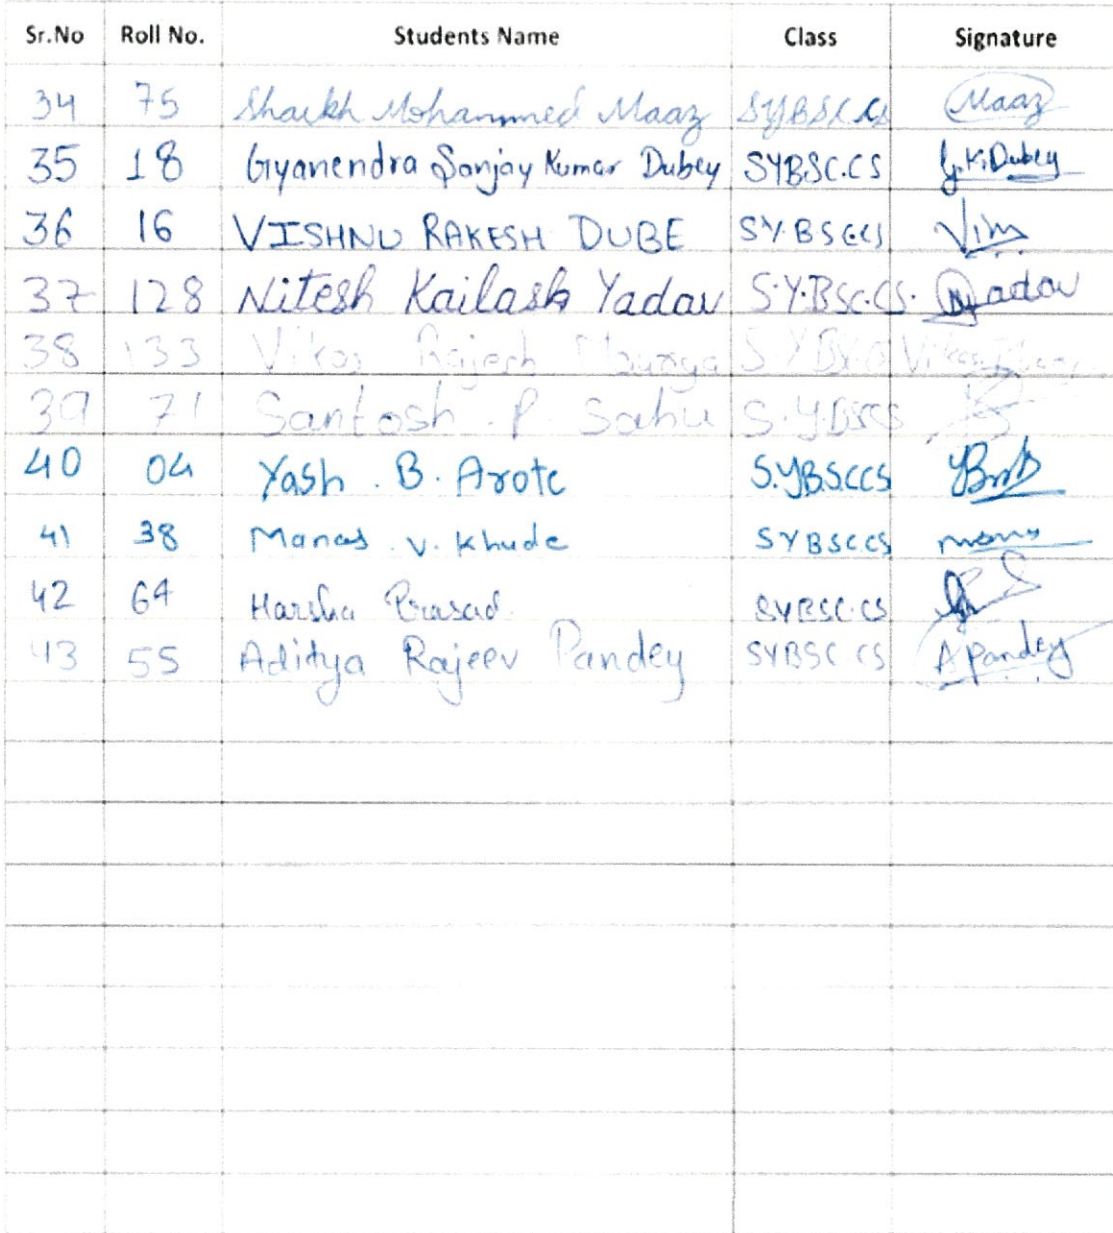 Sr.No Roll No. Students Name Class Signature
34 75 Shaikh Mohammed Maaz SYBSC.CS Maaz
35 18 Gyanendra Sanjay Kumar Dubey SYBSC.CS G.K.Dubey
36 16 VISHNU RAKESH DUBE SY.BSCCS
37 128 Nitesh Kailash Yadav S.Y.BSC.CS. NYadav
38 133 Vikas Rajesh Maurya
39 71 Santosh . P. Sahu S.YBSCS
40 04 Yash . B. Arote S.YBSCCS
41 38 Manas . V. Khude SYBSC.CS
42 64 Harsha Prasad. SYBSC.CS
43 55 Aditya Rajeev Pandey SYBSC CS APandey